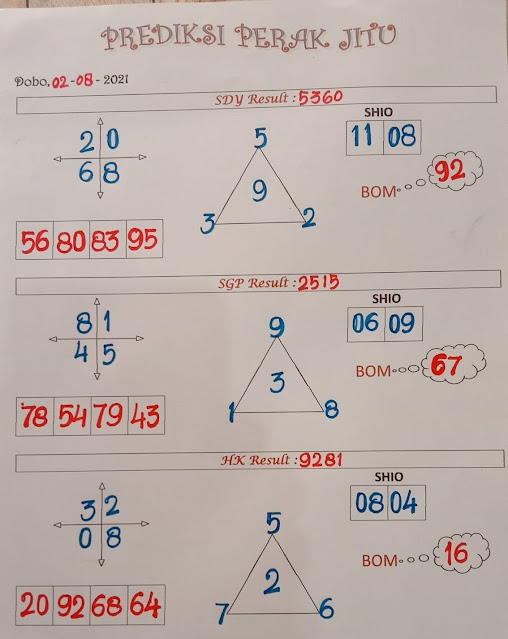 PREDIKSI PERAK JITU
Dobo, 02-08-2021
SDY Result : 5360
SHIO
2 0
5
11 08
6 8
9
BOM 92
3 2
56 80 83 95
SGP Result : 2515
SHIO
8 1
9
06 09
4 5
3
BOM 67
1 8
78 54 79 43
HK Result : 9281
SHIO
3 2
5
08 04
0 8
2
BOM 16
7 6
20 92 68 64